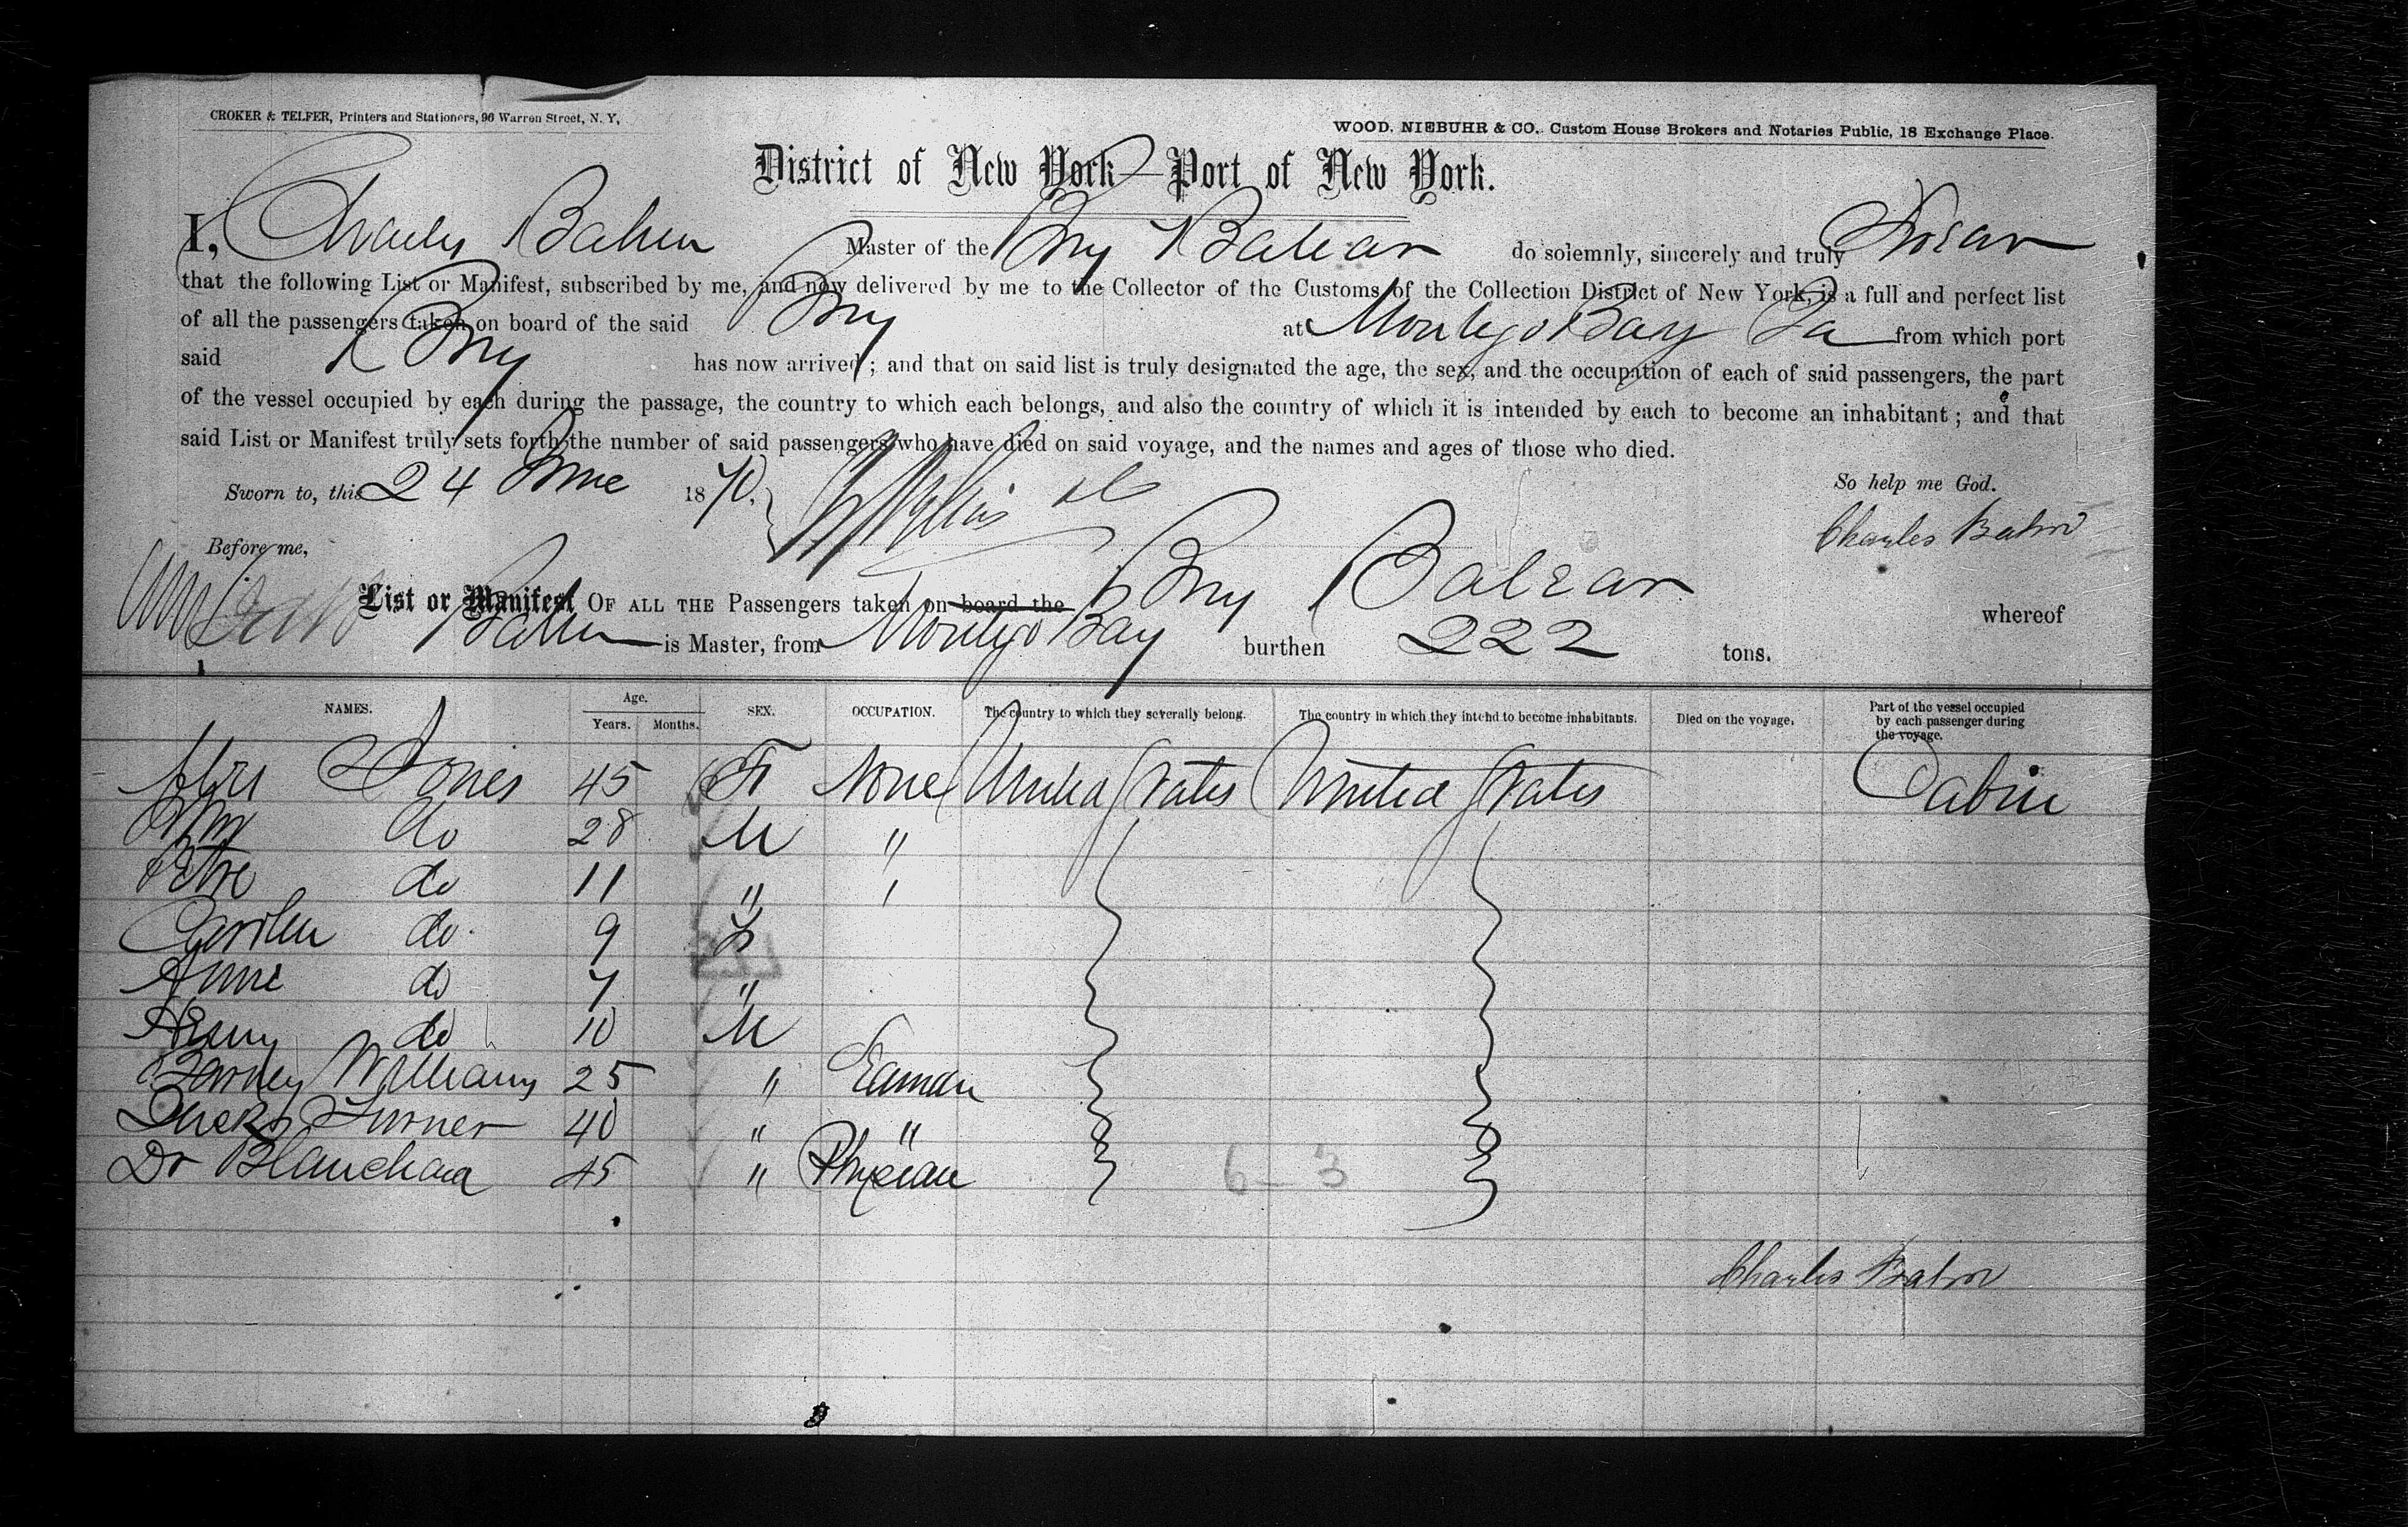 CROKER & TELFER, Printers and Stationers, 96 Warren Street, N. Y,
WOOD, NIEBUHR & CO., Custom House Brokers and Notaries Public, 18 Exchange Place.
District of New York—Port of New York.
I, Charles Master of the Brig do solemnly, sincerely and truly Swear
that the following List or Manifest, subscribed by me, and now delivered by me to the Collector of the Customs of the Collection District of New York, is a full and perfect list
of all the passengers taken on board of the said Brig at Montego Bay Ja from which port
said Brig has now arrived; and that on said list is truly designated the age, the sex, and the occupation of each of said passengers, the part
of the vessel occupied by each during the passage, the country to which each belongs, and also the country of which it is intended by each to become an inhabitant; and that
said List or Manifest truly sets forth the number of said passengers who have died on said voyage, and the names and ages of those who died.
Sworn to, this 24 June 1870. So help me God.
Before me, Charles
List or Manifest OF ALL THE Passengers taken on board the Brig whereof
is Master, from Montego Bay burthen 222 tons.
NAMES. Age. Years. Months. SEX. OCCUPATION. The country to which they severally belong. The country in which they intend to become inhabitants. Died on the voyage. Part of the vessel occupied by each passenger during the voyage.
Mrs Jones 45 F None United States United States Cabin
Wm do 28 M "
do 11 " "
do 9 F
Anne do 7 "
Henry do 10 M
Williams 25 " Seaman
Turner 40 " "
Dr Blanchard 45 " Physician
6 - 3
Charles